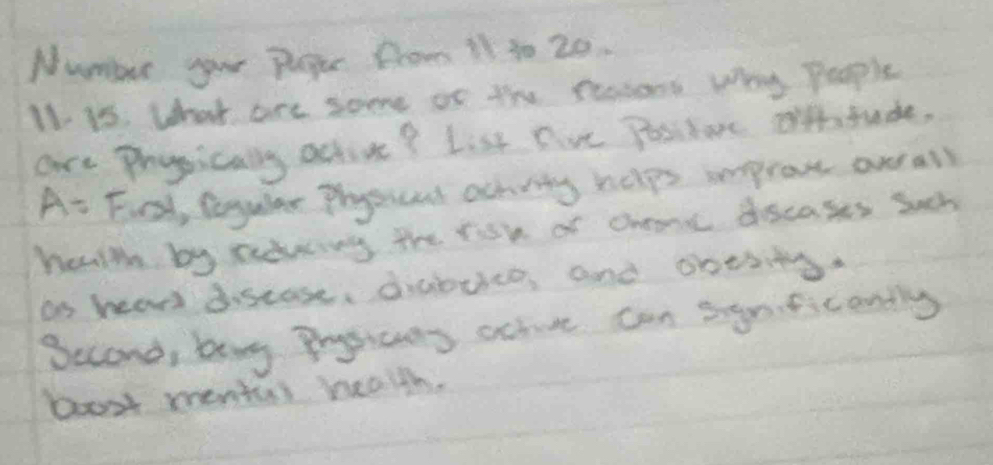 Number your Paper from 11 to 20.
11-15. What are some of the reasons why People
are Physically active? List five Positive attitude.
A= First, Regular Physical activity helps improve overall
health by reducing the risk of chronic diseases such
as heart disease, diabetes, and obesity.
Second, being Physically active can significantly
boost mental health.